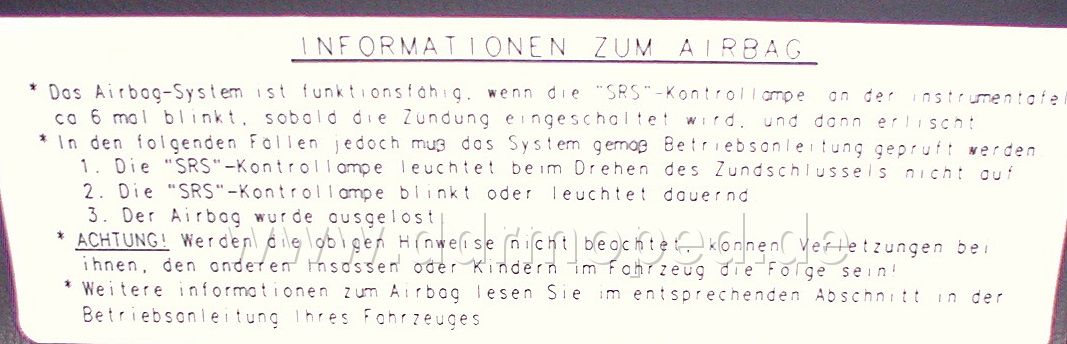 INFORMATIONEN ZUM AIRBAG
* Das Airbag-System ist funktionsfähig, wenn die "SRS"-Kontrollampe an der instrumentafel
ca 6 mal blinkt, sobald die Zundung eingeschaltet wird, und dann erlischt
* In den folgenden Fallen jedoch muß das System gemaß Betriebsanleitung gepruft werden
1. Die "SRS"-Kontrollampe leuchtet beim Drehen des Zundschlussels nicht auf
2. Die "SRS"-Kontrollampe blinkt oder leuchtet dauernd
3. Der Airbag wurde ausgelost
* ACHTUNG! Werden die obigen Hinweise nicht beachtet, konnen Verletzungen bei
ihnen, den anderen Insassen oder Kindern im Fahrzeug die Folge sein!
* Weitere informationen zum Airbag lesen Sie im entsprechenden Abschnitt in der
Betriebsanleitung Ihres Fahrzeuges
www.ddrmoped.de